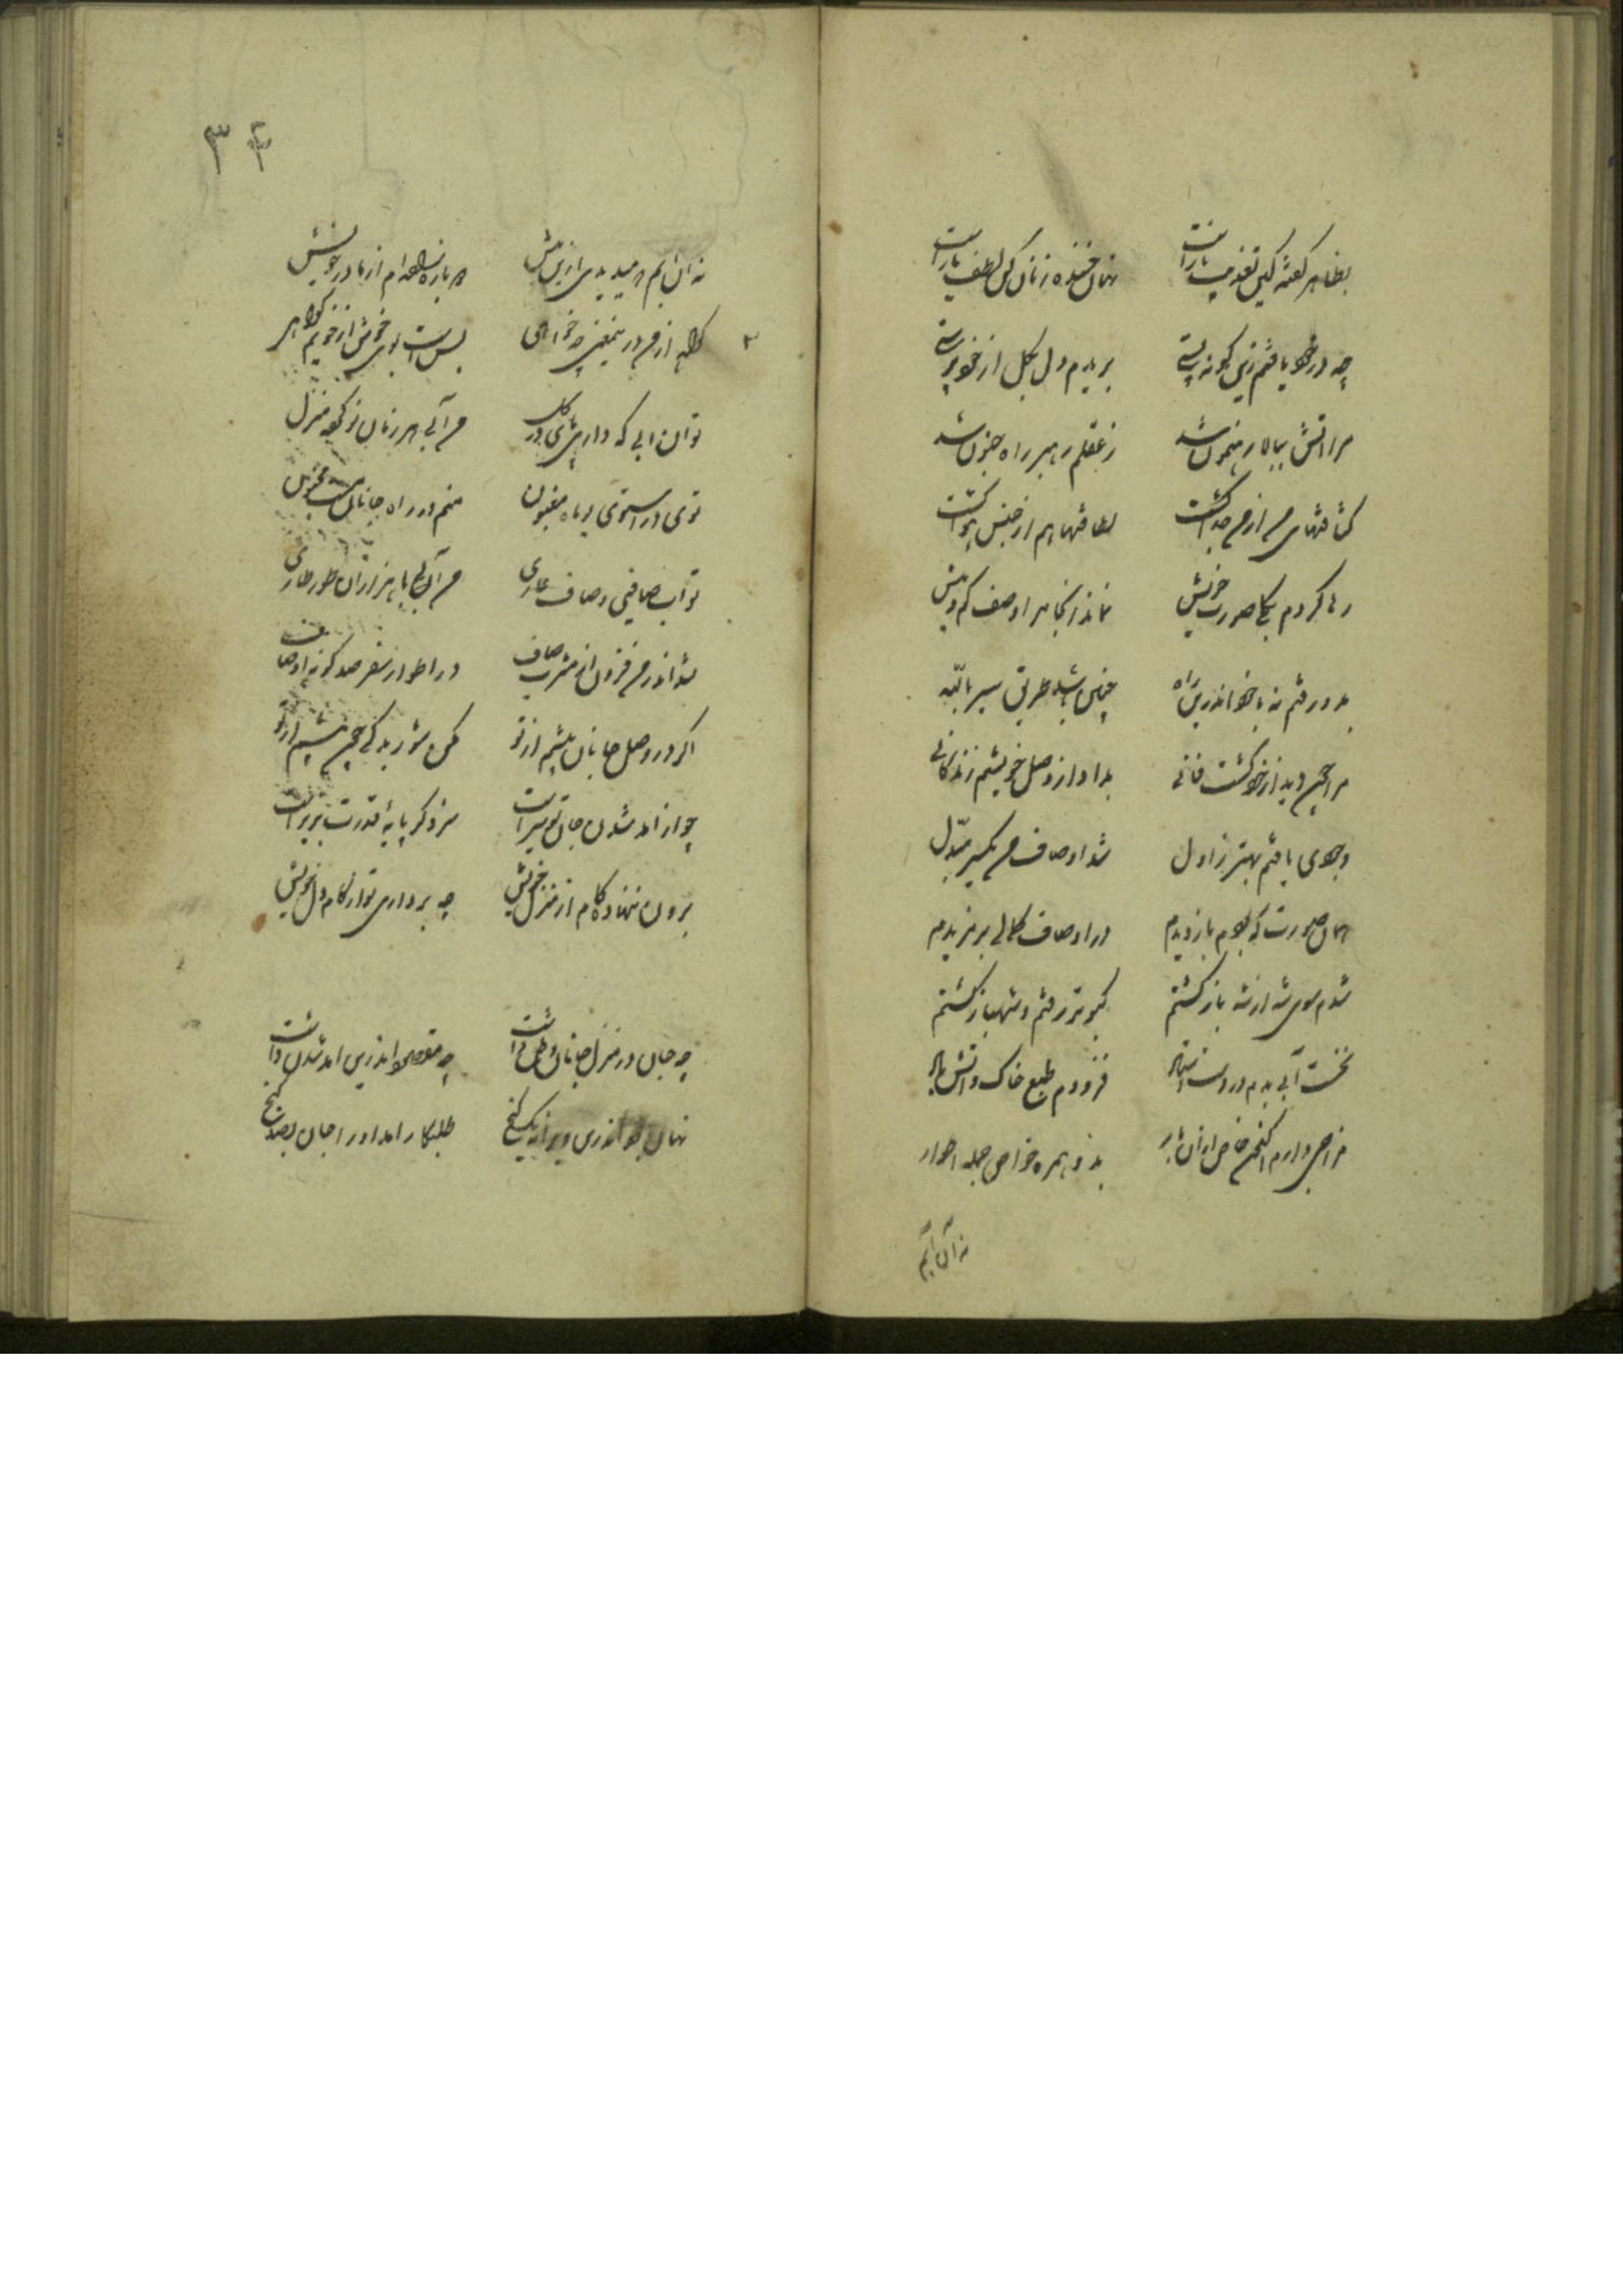 بظاهر گفته کین تعذیب یاراست نهان خنده زنان کین لطف یاراست
چه در خود یافتم زین گونه پستی بریدم دل بکل از خودپرستی
مرا آتش ببالا رهنمون شد ز عقلم رهبر راه جنون شد
کثافتهای من از من جدا گشت لطافتها هم از جنس هوا گشت
رها کردم بکل صورت خویش نماند آنجا مرا وصف کم و بیش
بدو رفتم نه با خود اندرین راه چنین باشد طریق سیر بالله
مرا چون دید از خود گشت فانی بداد از وصل خویشم زندگانی
وجودی یافتم بهتر ز اول شد اوصاف من یکسر مبدل
همان صورت که بودم باز دیدم در اوصاف کمالی بر مزیدم
شدم سوی شه از شه باز گشتم کبوتر رفتم و شهباز گشتم
نخست آبی بدم در دست استاد فزودم طبع خاک و آتش و باد
مزاجی دارم اکنون خاص از آن بار بد و همره خواص جمله اطوار
نه آن آبم
۳۴
نه آن آبم که میدیدی ازین پیش که باره زاده‌ام از مادر خویش
گواه از من درین معنی چه خواهی بس است بوی خوش از خویم گواهی
تو آن آبی که داری پای در گل من آبی هر زمان نو کرده منزل
توی در راستوی راه مغبون منم در راه جانان مست و مجنون
تو آب صافی و صاف عاری من آن آبم با هزاران طور طاری
شد اندر من فزون از مشرب صاف در اطوار سفر صد گونه اوصاف
اگر در وصل جانان بیشم از تو مکن شورید کی چون پیشم از تو
چو از آمد شدن جان تو سیر است سزد گر پایهٔ قدرت بزیر است
برون ننهاده گام از منزل خویش چه برداری تو از کام دل خویش
چه جان در منزل جانان وطن داشت چه مقصود اندرین آمد شدن داشت
نهان بود اندرین ویرانه یک گنج طلبکار آمد او را جان بصد رنج